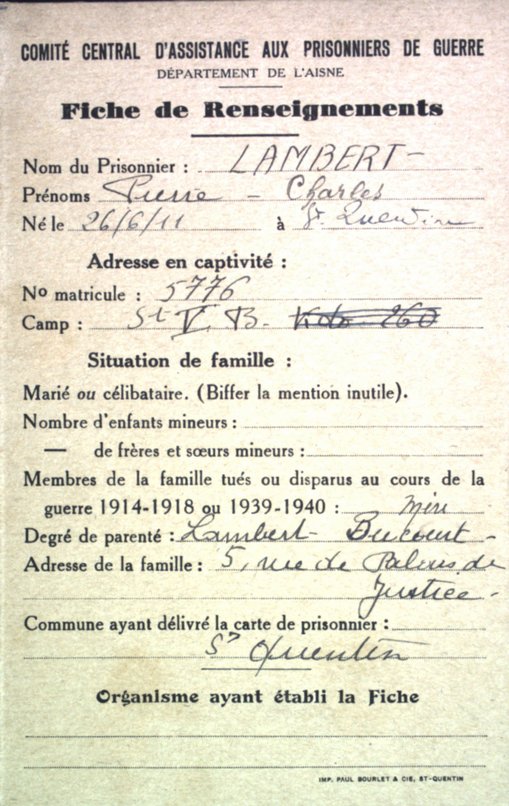 COMITÉ CENTRAL D'ASSISTANCE AUX PRISONNIERS DE GUERRE
DÉPARTEMENT DE L'AISNE
Fiche de Renseignements
Nom du Prisonnier : LAMBERT -
Prénoms Pierre - Charles
Né le 26/6/11 à St. Quentin
Adresse en captivité :
No matricule : 5776
Camp : St V. B. Kdo 260
Situation de famille :
Marié ou célibataire. (Biffer la mention inutile).
Nombre d'enfants mineurs :
— de frères et sœurs mineurs :
Membres de la famille tués ou disparus au cours de la
guerre 1914-1918 ou 1939-1940 :
Degré de parenté : Lambert - Ducourt -
Adresse de la famille : 5, rue de Palais de
Justice -
Commune ayant délivré la carte de prisonnier :
St Quentin
Organisme ayant établi la Fiche
IMP. PAUL BOURLET & CIE, ST-QUENTIN